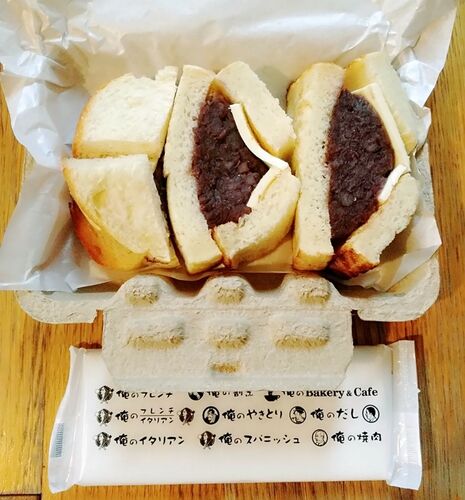 俺のフレンチ 俺の割烹 俺のBakery&Cafe
俺のフレンチ イタリアン 俺のやきとり 俺のだし
俺のイタリアン 俺のスパニッシュ 俺の焼肉